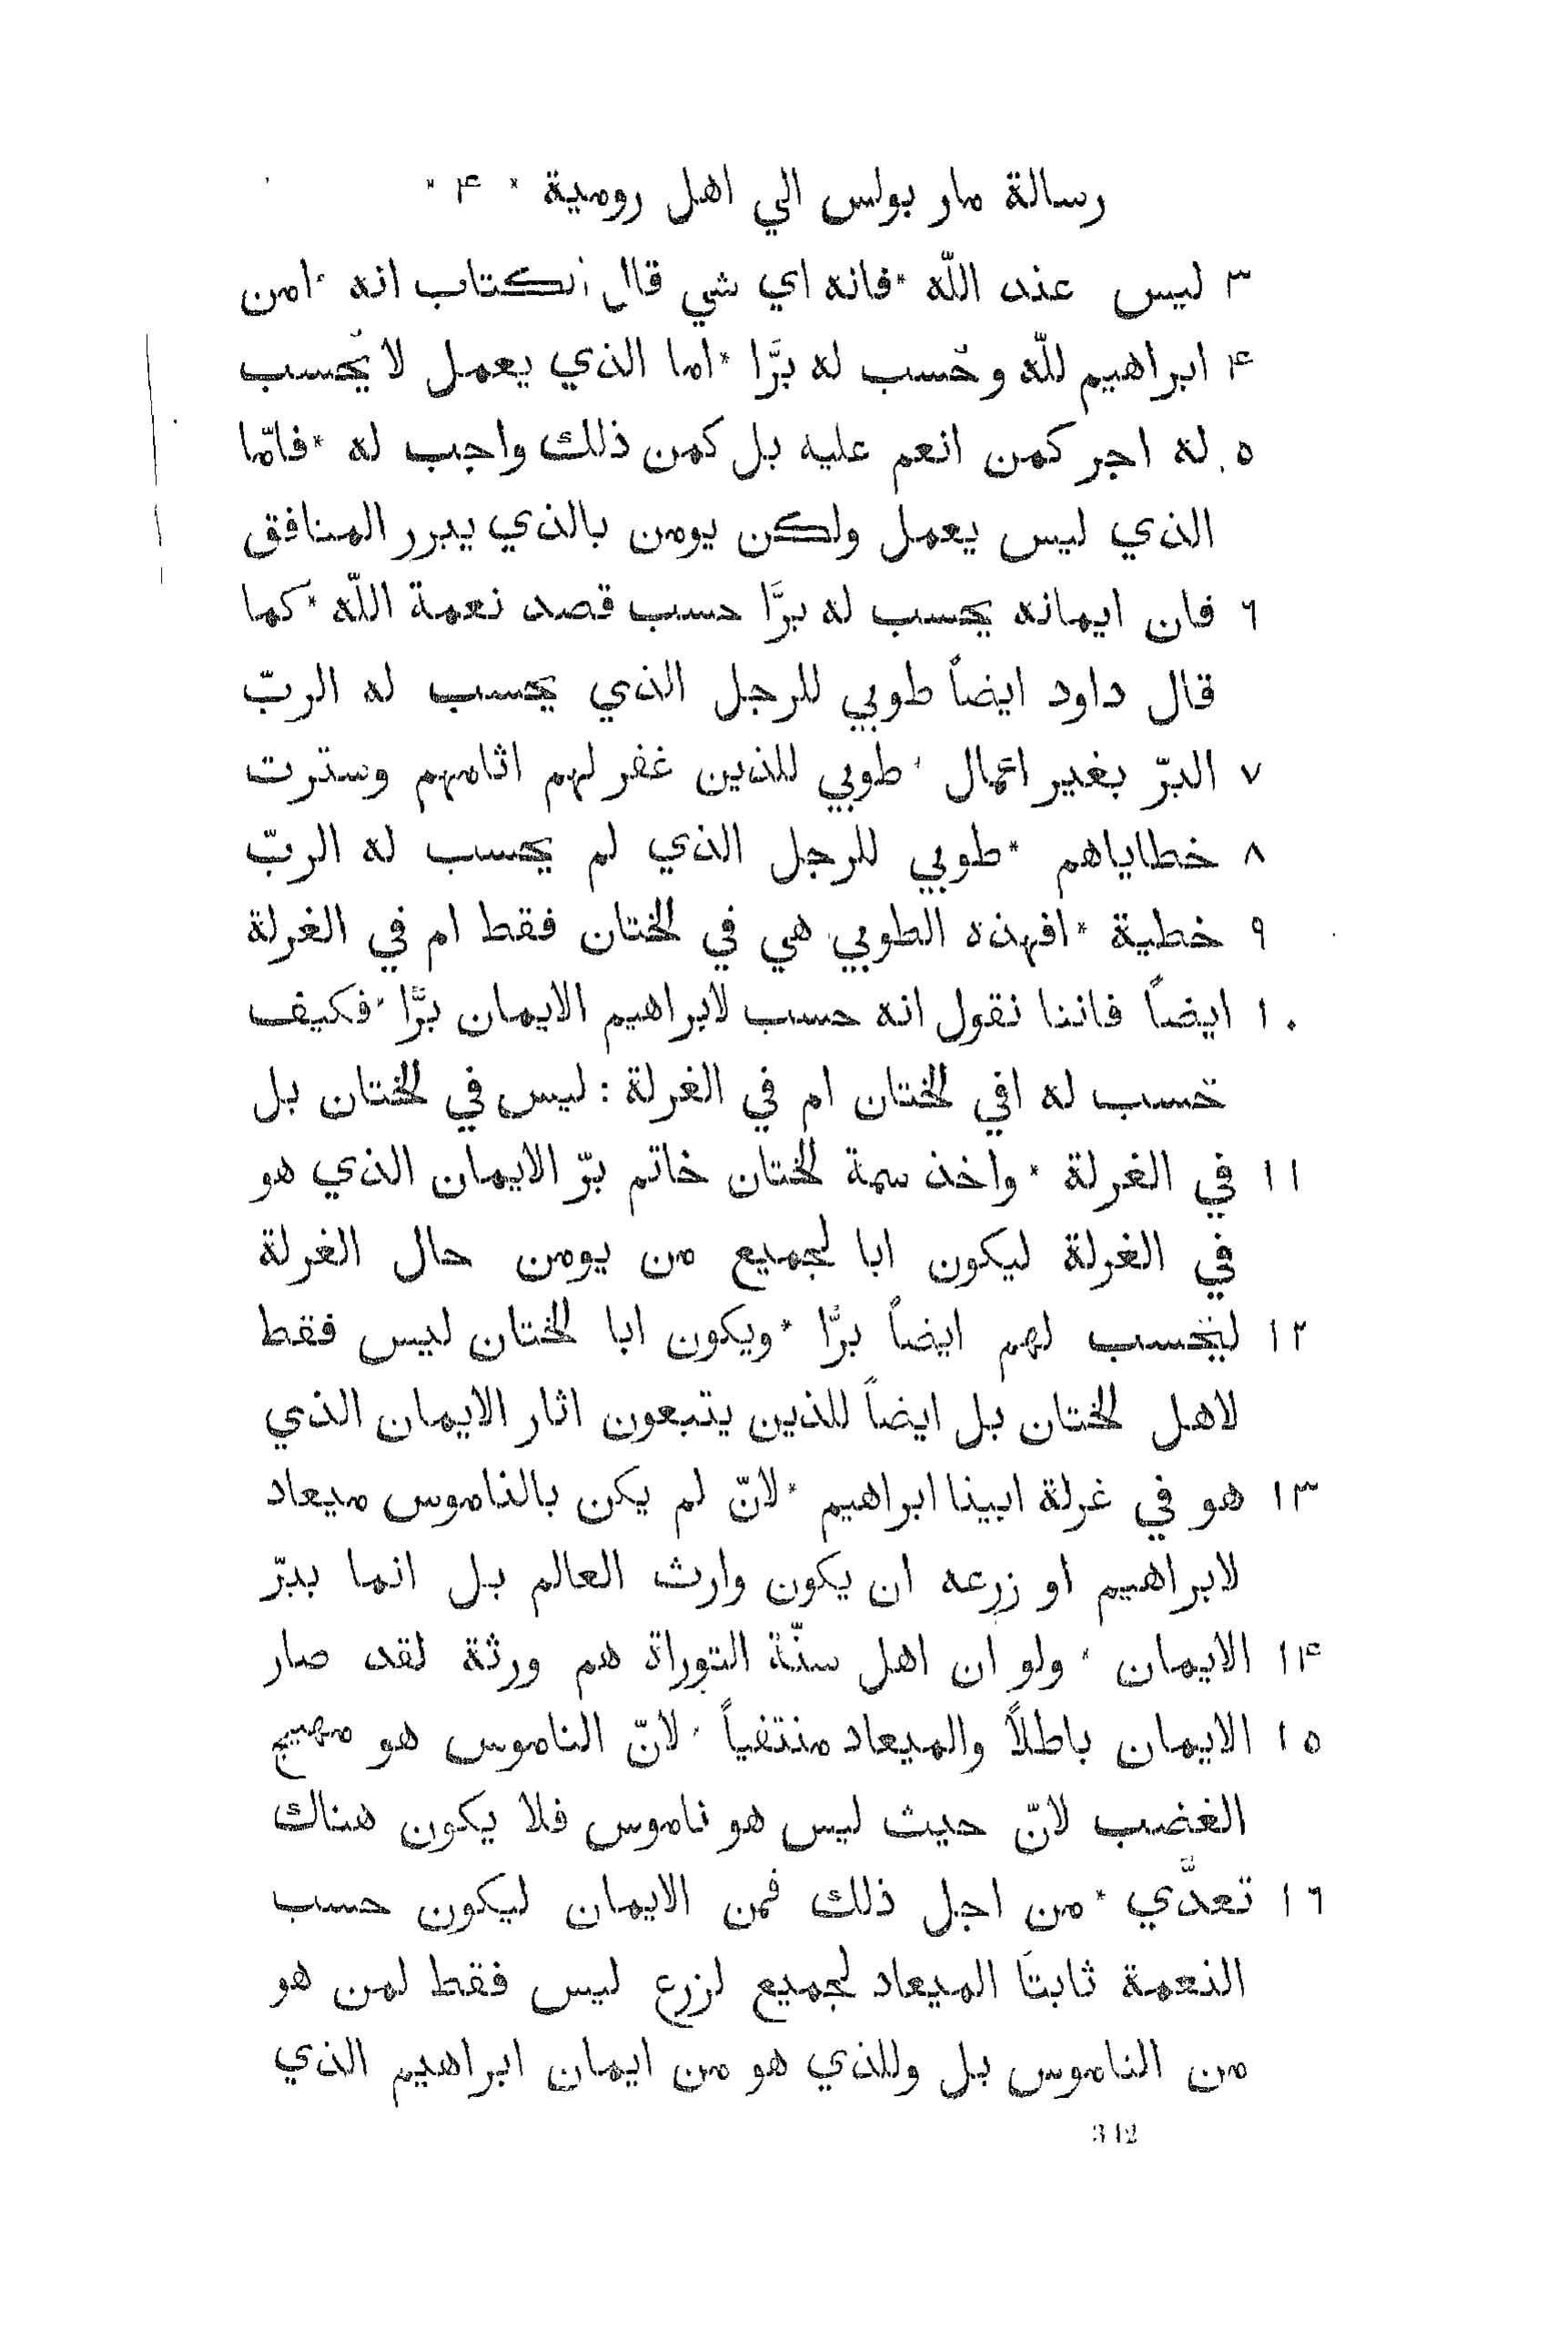 رسالة مار بولس الي اهل رومية * ۴ *
٣ ليس عند اللّه *فانه اي شي قال الكتاب انه *امن
۴ ابراهيم للّه وحُسب له برًّا *اما الذي يعمل لا يُحسب
٥ له اجر كمن انعم عليه بل كمن ذلك واجب له *فامّا
الذي ليس يعمل ولكن يومن بالذي يبرر المنافق
٦ فان ايمانه يحسب له برًّا حسب قصد نعمة اللّه *كما
قال داود ايضاً طوبي للرجل الذي يحسب له الربّ
٧ البرّ بغير اعمال * طوبي للذين غفر لهم اثامهم وسترت
٨ خطاياهم *طوبي للرجل الذي لم يحسب له الربّ
٩ خطية *افهذه الطوبي هي في الختان فقط ام في الغرلة
١٠ ايضاً فاننا نقول انه حسب لابراهيم الايمان برًّا *فكيف
حسب له افي الختان ام في الغرلة : ليس في الختان بل
١١ في الغرلة * واخذ سمة الختان خاتم برّ الايمان الذي هو
في الغرلة ليكون ابا لجميع من يومن حال الغرلة
١٢ ليُحسب لهم ايضاً برًّا *ويكون ابا الختان ليس فقط
لاهل الختان بل ايضاً للذين يتبعون اثار الايمان الذي
١٣ هو في غرلة ابينا ابراهيم *لانّ لم يكن بالناموس ميعاد
لابراهيم او زرعه ان يكون وارث العالم بل انما ببرّ
١۴ الايمان * ولو ان اهل سنّة التوراة هم ورثة لقد صار
١٥ الايمان باطلاً والميعاد منتفياً *لانّ الناموس هو مهيج
الغضب لانّ حيث ليس هو ناموس فلا يكون هناك
١٦ تعدّي * من اجل ذلك فمن الايمان ليكون حسب
النعمة ثابتًا الميعاد لجميع لزرع ليس فقط لمن هو
من الناموس بل وللذي هو من ايمان ابراهيم الذي
342